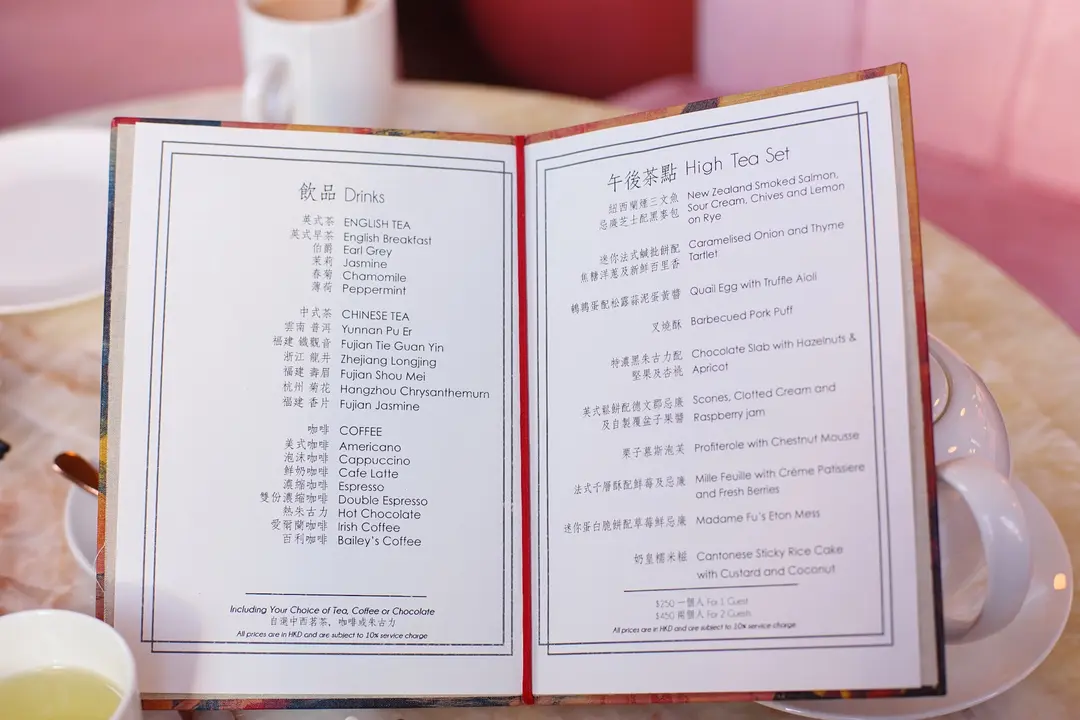 飲品 Drinks
英式茶 ENGLISH TEA
英式早茶 English Breakfast
伯爵 Earl Grey
茉莉 Jasmine
春菊 Chamomile
薄荷 Peppermint
中式茶 CHINESE TEA
雲南 普洱 Yunnan Pu Er
福建 鐵觀音 Fujian Tie Guan Yin
浙江 龍井 Zhejiang Longjing
福建 壽眉 Fujian Shou Mei
杭州 菊花 Hangzhou Chrysanthemum
福建 香片 Fujian Jasmine
咖啡 COFFEE
美式咖啡 Americano
泡沫咖啡 Cappuccino
鮮奶咖啡 Cafe Latte
濃縮咖啡 Espresso
雙份濃縮咖啡 Double Espresso
熱朱古力 Hot Chocolate
愛爾蘭咖啡 Irish Coffee
百利咖啡 Bailey's Coffee
Including Your Choice of Tea, Coffee or Chocolate
自選中西茗茶、咖啡或朱古力
All prices are in HKD and are subject to 10% service charge
午後茶點 High Tea Set
紐西蘭煙三文魚 New Zealand Smoked Salmon,
忌廉芝士配黑麥包 Sour Cream, Chives and Lemon
on Rye
迷你法式鹹批餅配 Caramelised Onion and Thyme
焦糖洋蔥及新鮮百里香 Tartlet
鵪鶉蛋配松露蒜泥蛋黃醬 Quail Egg with Truffle Aioli
叉燒酥 Barbecued Pork Puff
特濃黑朱古力配 Chocolate Slab with Hazelnuts &
堅果及杏桃 Apricot
英式鬆餅配德文郡忌廉 Scones, Clotted Cream and
及自製覆盆子果醬 Raspberry jam
栗子慕斯泡芙 Profiterole with Chestnut Mousse
法式千層酥配鮮莓及忌廉 Mille Feuille with Crème Patissiere
and Fresh Berries
迷你蛋白脆餅配草莓鮮忌廉 Madame Fu's Eton Mess
奶皇糯米糍 Cantonese Sticky Rice Cake
with Custard and Coconut
$250 一個人 For 1 Guest
$450 兩個人 For 2 Guests
All prices are in HKD and are subject to 10% service charge